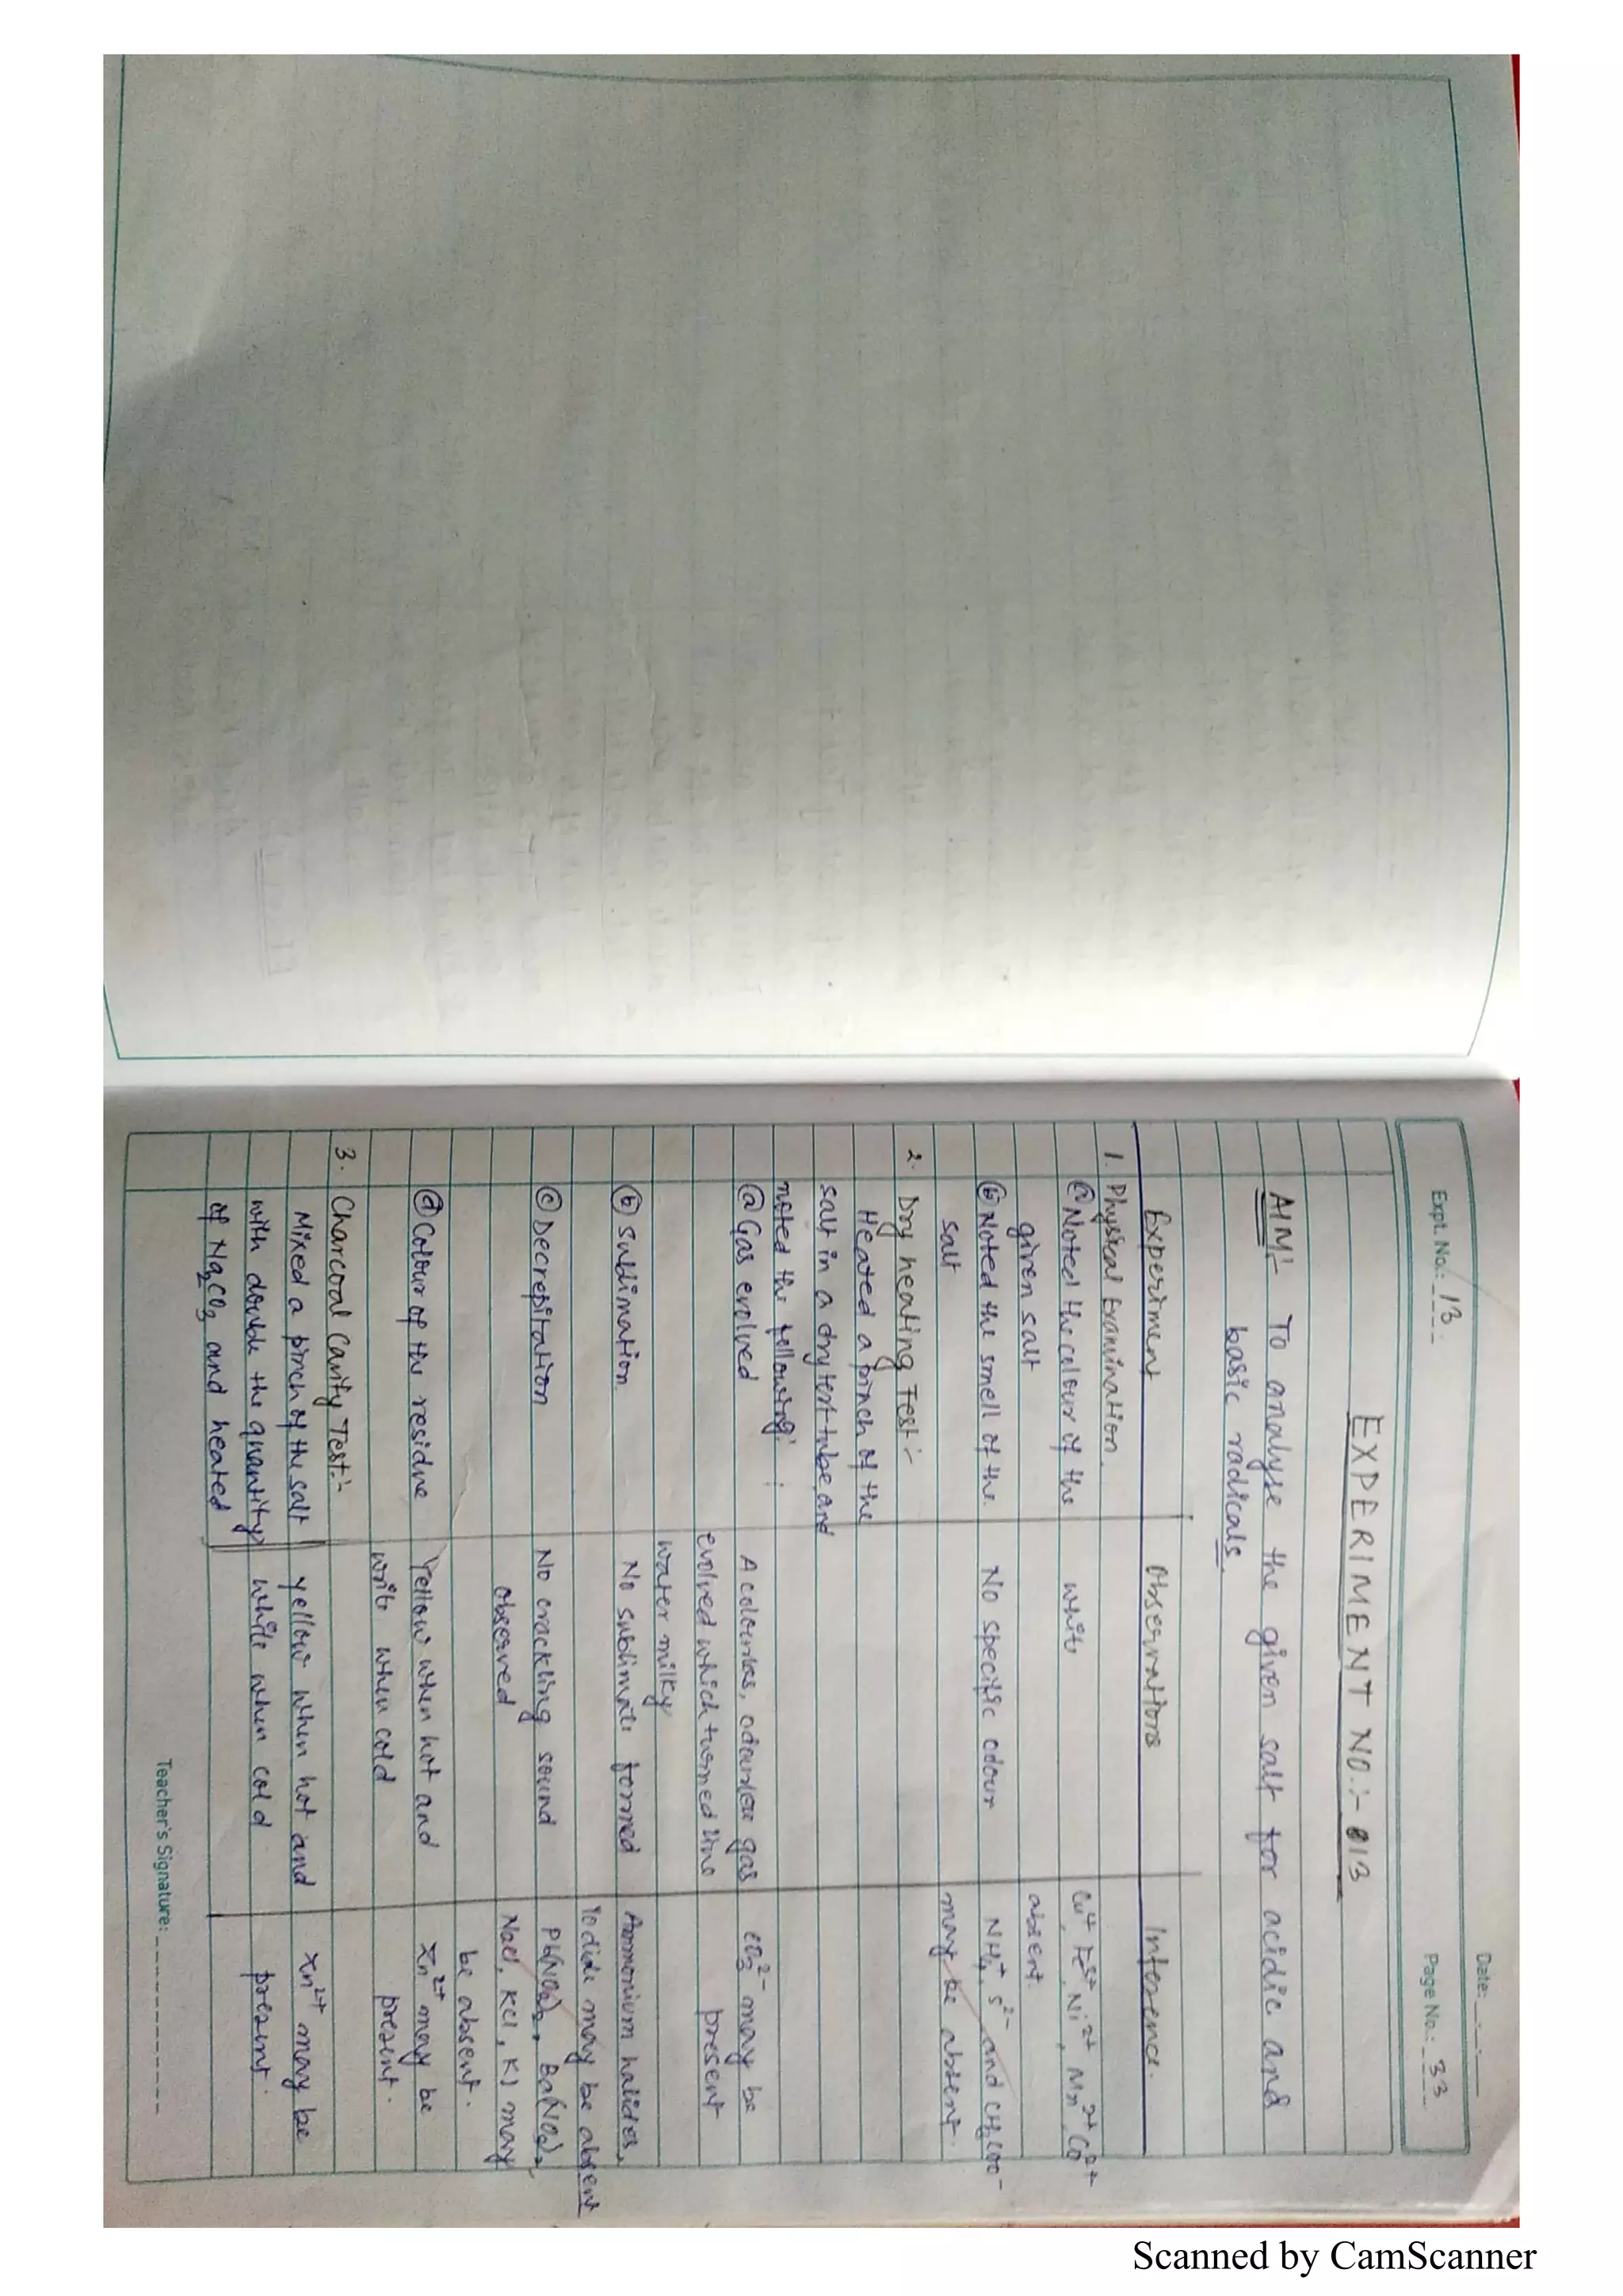 Date: __.__.__
Expt. No.: 13
Page No.: 33
EXPERIMENT NO:- 013
AIM:- To analyse the given salt for acidic and
basic radicals.
Experiment Observations Inference.
1. Physical Examination.
(a) Noted the colour of the white Cu²⁺, Fe³⁺, Ni²⁺, Mn²⁺, Co²⁺
given salt absent.
(b) Noted the smell of the No specific odour NH₄⁺, S²⁻ and CH₃COO⁻
salt may be absent.
2. Dry heating Test:-
Heated a pinch of the
salt in a dry test-tube and
noted the following:
(a) Gas evolved A colourless, odourless gas CO₃²⁻ may be
evolved which turned lime present
water milky
(b) Sublimation. No sublimate formed Ammonium halides,
Iodide may be absent
(c) Decrepitation No crackling sound Pb(NO₃)₂, Ba(NO₃)₂,
observed NaCl, KCl, KI may
be absent.
(d) Colour of the residue Yellow when hot and Zn²⁺ may be
white when cold present.
3. Charcoal Cavity Test:-
Mixed a pinch of the salt yellow when hot and Zn²⁺ may be
with double the quantity white when cold present.
of Na₂CO₃ and heated
Teacher's Signature: ____________
Scanned by CamScanner